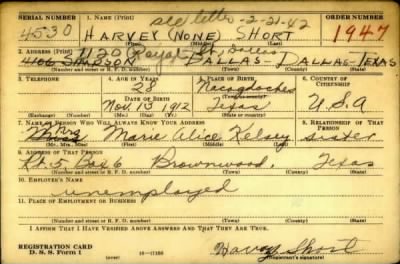 SERIAL NUMBER 1. NAME (Print) see letter - 2-21-42 ORDER NUMBER
4530 HARVEY (NONE) SHORT 1947
2. ADDRESS (Print) 1120 St, Dallas
4106 SIMPSON DALLAS - DALLAS - TEXAS
(Number and street or R. F. D. number) (Town) (County) (State)
3. TELEPHONE 4. AGE IN YEARS 5. PLACE OF BIRTH 6. COUNTRY OF CITIZENSHIP
28 Nacogdoches
DATE OF BIRTH (Town or county)
Nov 13 1912 Texas U.S.A
(Exchange) (Number) (Mo.) (Day) (Yr.) (State or country)
7. NAME OF PERSON WHO WILL ALWAYS KNOW YOUR ADDRESS 8. RELATIONSHIP OF THAT PERSON
Mrs Marie Alice Kelsey sister
(Mr., Mrs., Miss) (First) (Middle) (Last)
9. ADDRESS OF THAT PERSON
Rt. 5 Box 6 Brownwood, Texas
(Number and street or R. F. D. number) (Town) (County) (State)
10. EMPLOYER'S NAME
unemployed
11. PLACE OF EMPLOYMENT OR BUSINESS
(Number and street or R. F. D. number) (Town) (County) (State)
I AFFIRM THAT I HAVE VERIFIED ABOVE ANSWERS AND THAT THEY ARE TRUE.
REGISTRATION CARD
D. S. S. Form 1 16-17105 Harvey Short
(Registrant's signature)